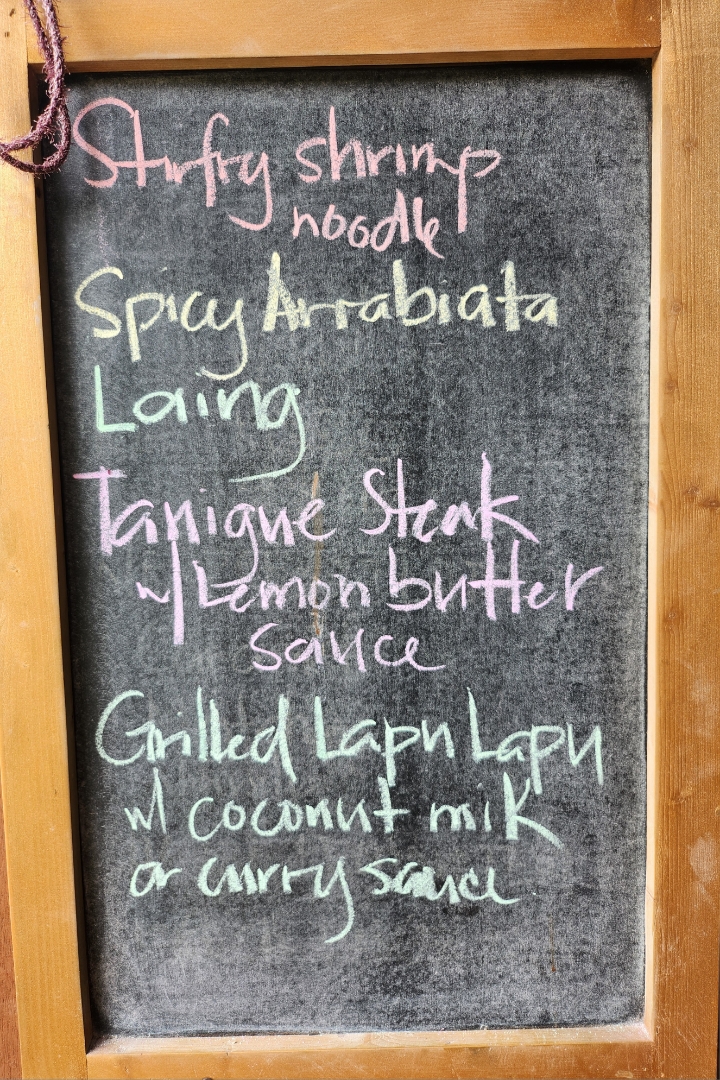 Stirfry shrimp
noodle
Spicy Arrabiata
Laing
Tanigue Steak
w/ Lemon butter
sauce
Grilled Lapu Lapu
w/ coconut milk
or curry sauce